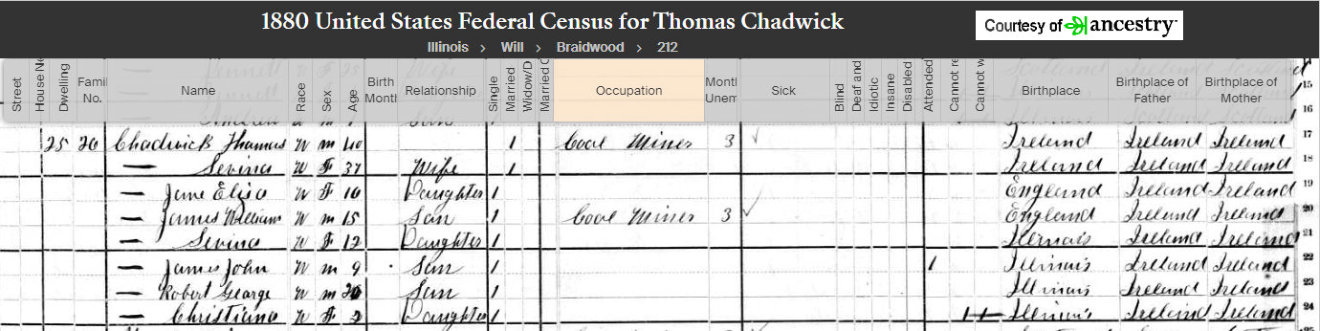 1880 United States Federal Census for Thomas Chadwick
Courtesy of ancestry
Illinois > Will > Braidwood > 212
Street House N Dwelling Famil No. Name Race Sex Age Birth Month Relationship Single Married Widow/D Married C Occupation Month Unem Sick Blind Deaf and Idiotic Insane Disabled Attended Cannot re Cannot w Birthplace Birthplace of Father Birthplace of Mother
15
16
25 26 Chadwick Thomas W M 40 1 Coal Miner 3 Ireland Ireland Ireland 17
— Sevina W F 37 Wife 1 Ireland Ireland Ireland 18
— Jane Eliza W F 16 Daughter 1 England Ireland Ireland 19
— James William W M 15 Son 1 Coal Miner 3 England Ireland Ireland 20
— Sevina W F 12 Daughter 1 Illinois Ireland Ireland 21
— James John W M 9 Son 1 1 Illinois Ireland Ireland 22
— Robert George W M Son 1 Illinois Ireland Ireland 23
— Christiana W F 2 Daughter 1 Illinois Ireland Ireland 24